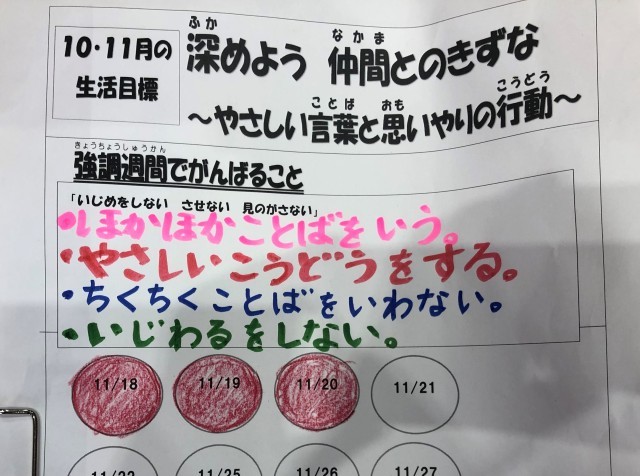 10・11月の
生活目標
深めよう 仲間とのきずな
ふか なかま
～やさしい言葉と思いやりの行動～
ことば おも こうどう
きょうちょうしゅうかん
強調週間でがんばること
「いじめをしない させない 見のがさない」
・ほかほかことばをいう。
・やさしいこうどうをする。
・ちくちくことばをいわない。
・いじわるをしない。
11/18 11/19 11/20 11/21
11/25 11/26 11/27